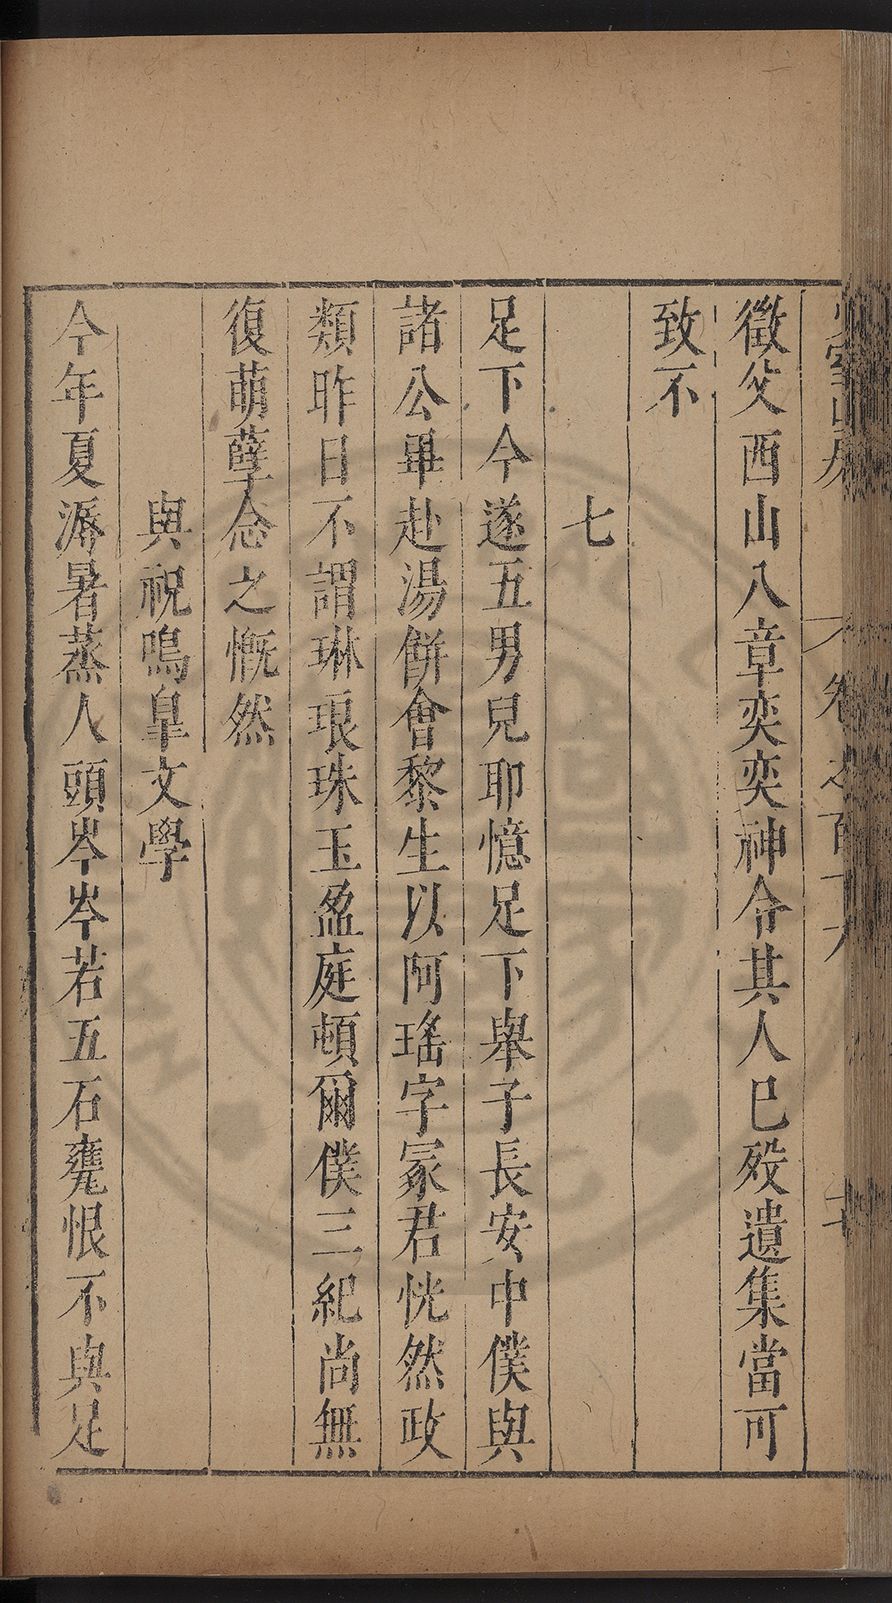 徵父西山八章奕奕神令其人已歿遺集當可
致不
七
足下今遂五男兒耶憶足下舉子長安中僕與
諸公畢赴湯餅會黎生以阿瑤字冢君恍然政
類昨日不謂琳琅珠玉盈庭頓爾僕三紀尚無
復萌孽念之慨然
與祝鳴臯文學
今年夏溽暑蒸人頭岑岑若五石甕恨不與足